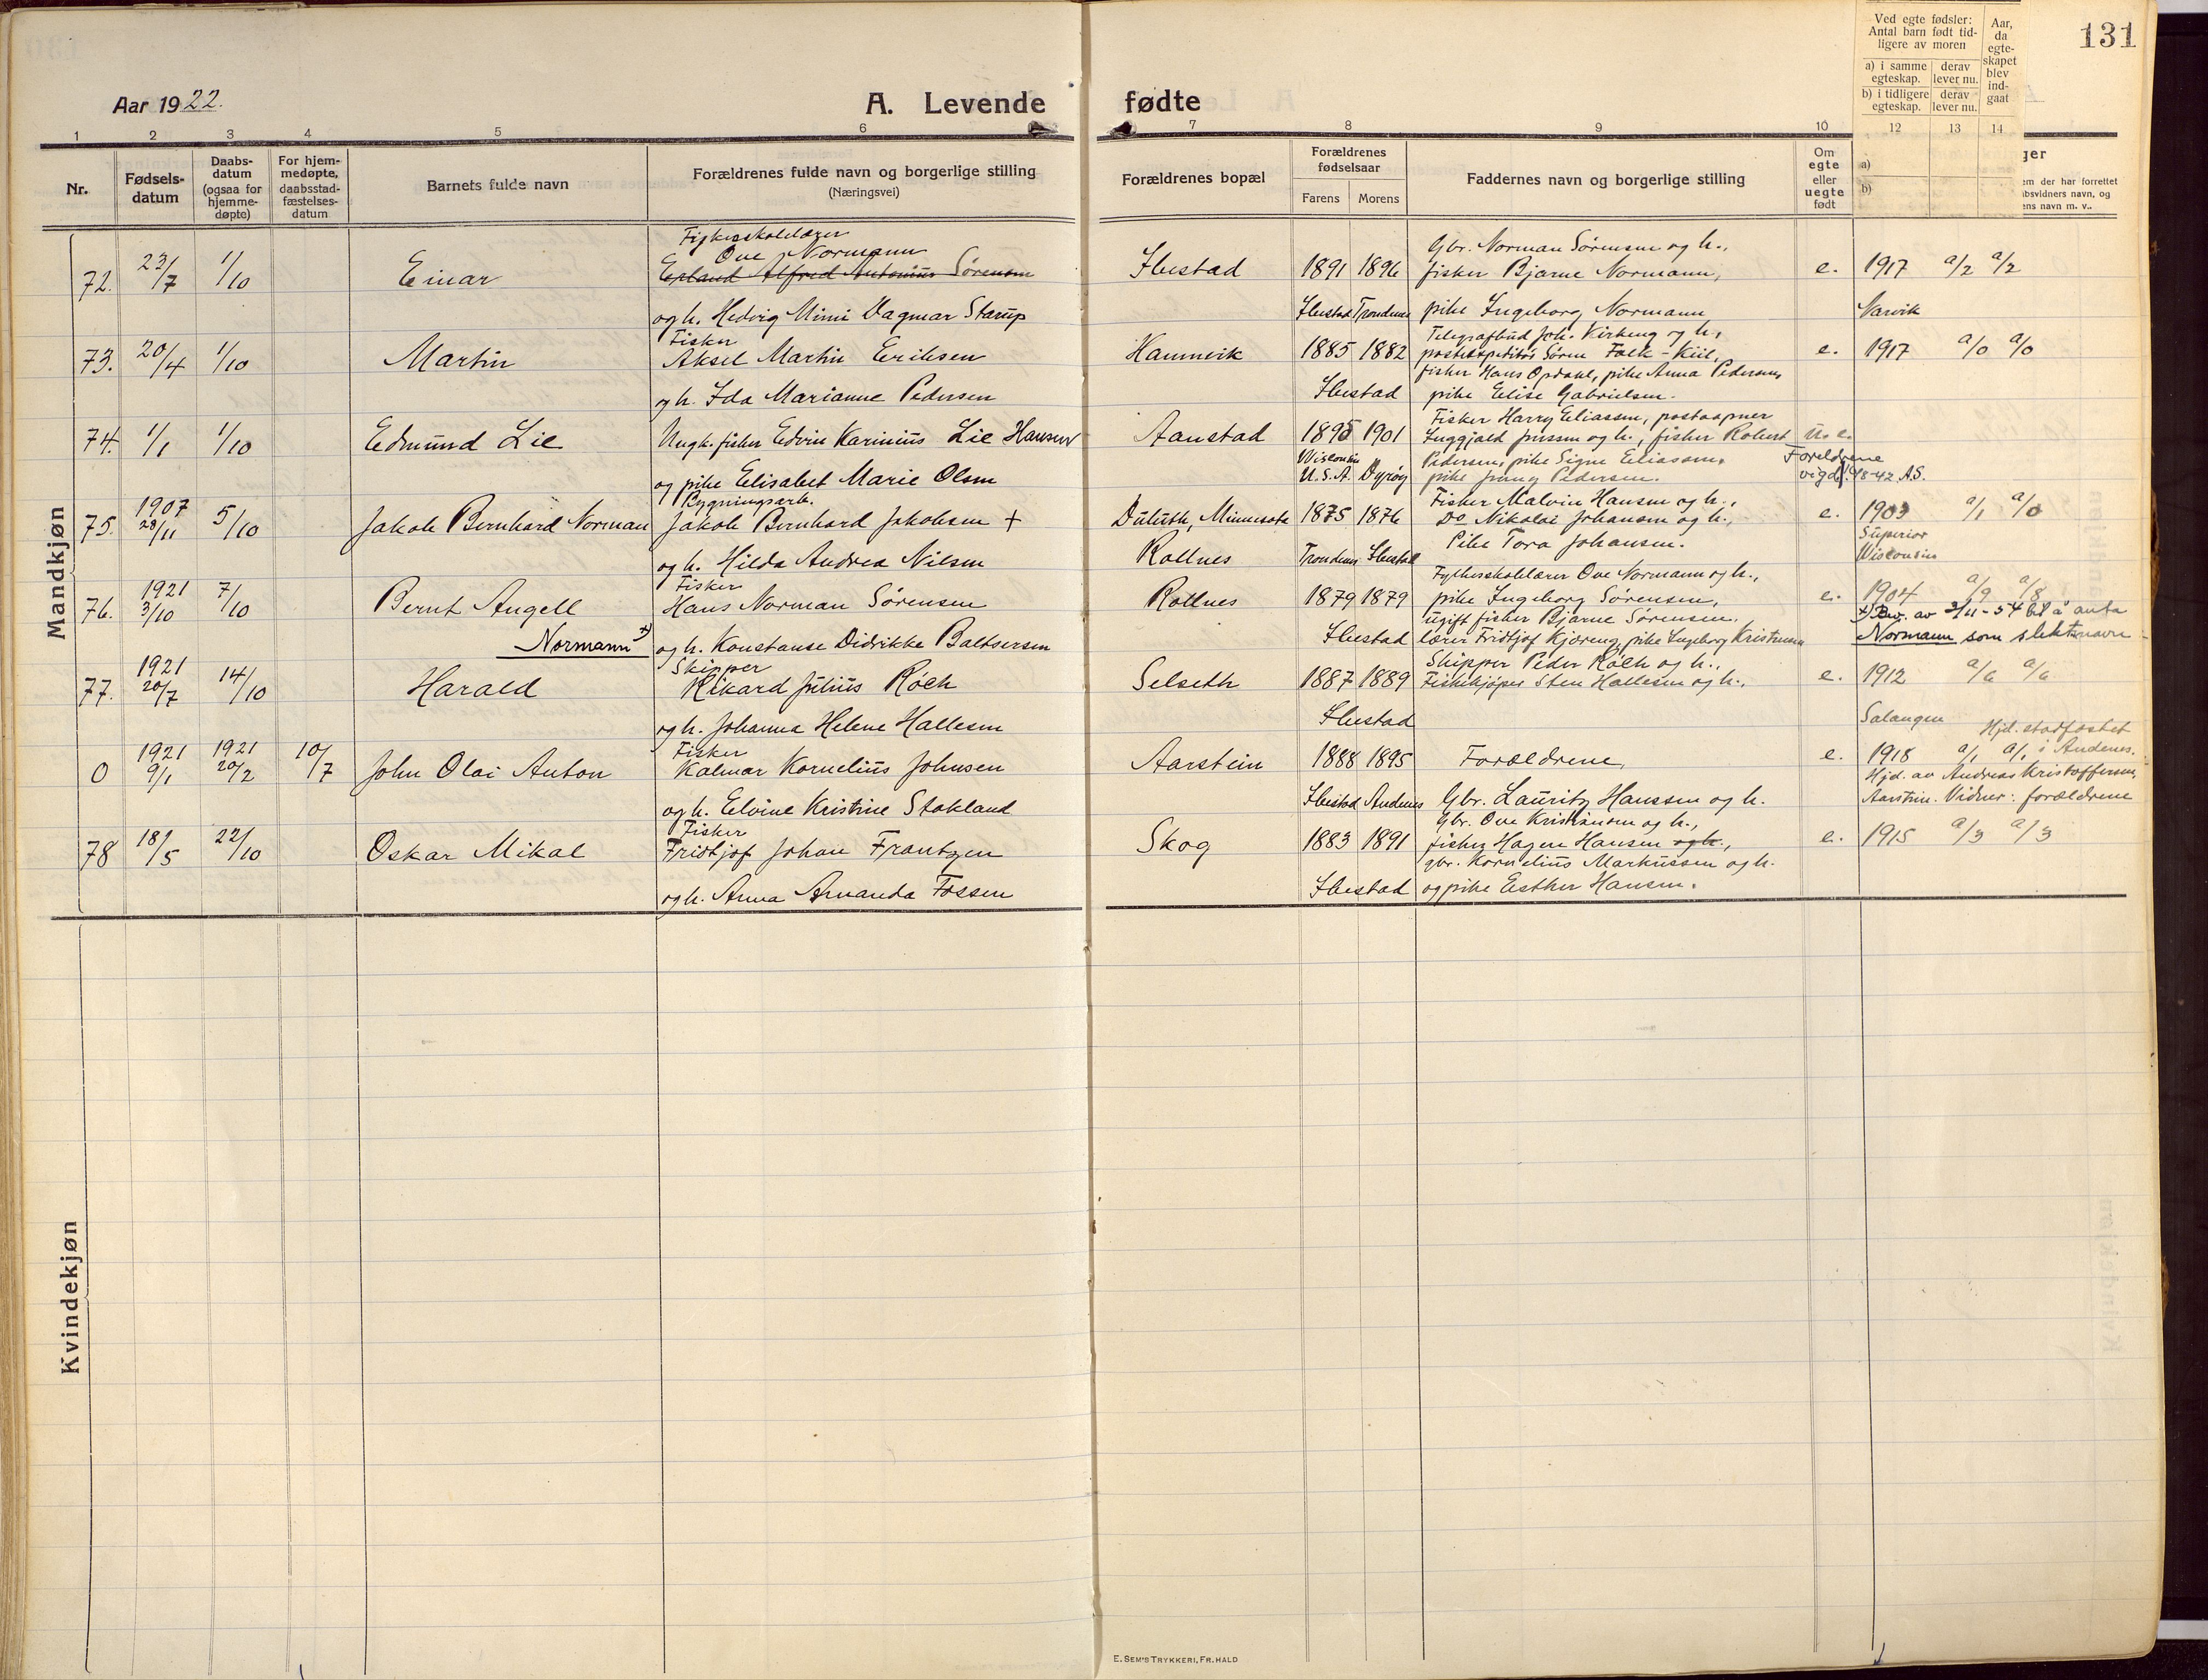 131
Aar 1922.
A. Levende fødte
1 2 3 4 5 6 7 8 9 10 12 13 14
Nr.
Fødsels-
datum
Daabs-
datum
(ogsaa for
hjemme-
døpte)
For hjem-
medøpte,
daabsstad-
fæstelses-
datum
Barnets fulde navn
Forældrenes fulde navn og borgerlige stilling
(Næringsvei)
Forældrenes bopæl
Forældrenes
fødselsaar
Farens Morens
Faddernes navn og borgerlige stilling
Om
egte
eller
uegte
født
Ved egte fødsler:
Antal barn født tid-
ligere av moren
a) i samme
egteskap.
derav
lever nu.
b) i tidligere
egteskap.
derav
lever nu.
Aar,
da
egte-
skapet
blev
ind-
gaat
a)
b)
ger
em der har forrettet
bsvidners navn, og
ens navn m. v..
Mandkjøn
72. 23/7 1/10 Einar
Fylkesskolelærer
Ove Normann
Erland Alfred Antonius Sørensen
og h. Hedvig Mimi Dagmar Starup
Ibestad 1891 1896
Ibestad Trondenes
Gbr. Norman Sørensen og h.,
fisker Bjarne Normann,
pike Ingeborg Normann
e. 1917 a/2 a/2
Narvik
73. 20/4 1/10 Martin
Fisker
Aksel Martin Eriksen
og h. Ida Marianne Pedersen
Hamnvik 1885 1882
Ibestad
Telegrafbud Joh. Kirkeng og h.,
postekspeditør Sørne Falk-Kiil,
fisker Hans Opdahl, pike Anna Pedersen,
pike Elise Gabrielsen.
e. 1917 a/0 a/0
74. 1/1 1/10 Edmund Lie
Ungk. fisker Edvin Karinius Lie Hansen
og pike Elisabet Marie Olsen
Aanstad 1895 1901
Wisconsin
U.S.A. Dyrøy
Fisker Harry Eliassen, postaapner
Inggjald Jenssen og h., fisker Robert
Pedersen, pike Signe Eliassen,
pike Jenny Pedersen.
u. e.
Foreldrene
vigd
48-42 A.S.
75. 1907 28/11 5/10 Jakob Bernhard Norman
Bygningsarb.
Jakob Bernhard Jakobsen +
og h. Hilda Andrea Nilsen
Duluth, Minnesota 1875 1876
Rollnes Trondenes Ibestad
Fisker Malvin Hansen og h.,
Do Nikolai Johansen og h.,
Pike Tora Johansen.
e. 1903 a/1 a/0
Superior
Wisconsin
76. 1921 3/10 7/10 Bernt Angell
Normann x)
Fisker
Hans Norman Sørensen
og h. Konstanse Didrikke Baltsersen
Rollnes 1879 1879
Ibestad
Fylkesskolelærer Ove Normann og h.,
pike Ingeborg Sørensen,
ugift fisker Bjarne Sørensen.
lærer Fridtjof Kjæreng, pike Ingeborg Kristensen
e. 1904 a/9 a/8
x) Bev. av 3/11-54 til å anta
Normann som slektsnavn
77. 1921 20/7 14/10 Harald
Skipper
Rikard Julius Røch
og h. Johanna Helene Hallesen
Selseth 1887 1889
Ibestad
Skipper Peder Røch og h.,
Fiskekjøper Sten Hallesen og h.,
e. 1912 a/6 a/6
Salangen
0 1921 9/1 1921 20/2 10/7 John Olai Anton
Fisker
Kalmar Kornelius Johnsen
og h. Elvine Kristine Stokland
Aarstein 1888 1895
Ibestad Andenes
Forældrene,
Gbr. Lauritz Hanssen og h.
e. 1918 a/1 a/1
Hjd. stadfæstet
i Andenes.
Hjd. av Andreas Kristoffersen,
Aarstein. Vidner: forældrene
78 18/5 22/10 Oskar Mikal
Fisker
Fridtjof Johan Frantzen
og h. Anna Amanda Fossen
Skog 1883 1891
Ibestad
Gbr. Ove Kristiansen og h.,
fisker Hagen Hansen og h.,
gbr. Kornelius Markussen og h.
og pike Esther Hansen.
e. 1915 a/3 a/3
Kvindekjøn
E. SEM'S TRYKKERI, FR.HALD